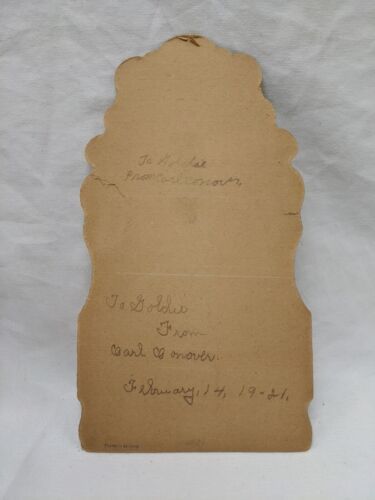 To Goldie
From Carl Conover
To Goldie
From
Carl Conover.
February, 14, 19-21,